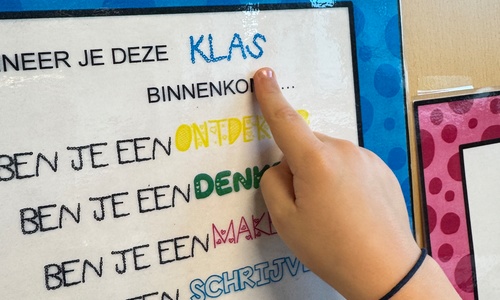 NEER JE DEZE KLAS
BINNENKO ...
BEN JE EEN ONTDEK
BEN JE EEN DENK
BEN JE EEN MAKE
EEN SCHRIJV